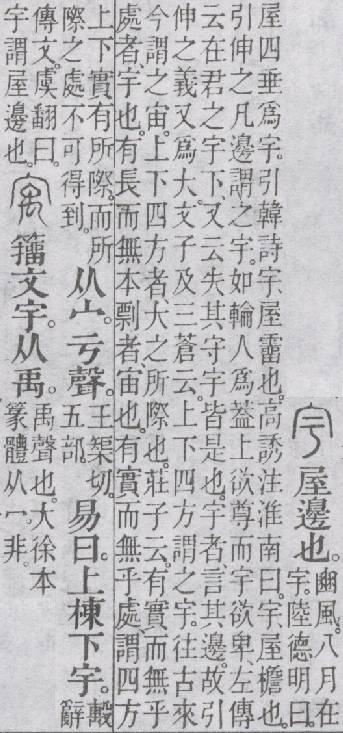 宇屋邊也。豳風。八月在
宇。陸德明曰。
屋四垂爲宇。引韓詩宇、屋霤也。高誘注淮南曰。宇、屋檐也。
引伸之凡邊謂之宇。如輪人爲葢上欲尊而宇欲卑。左傳
云在君之宇下。又云失其守宇皆是也。宇者言其邊。故引
伸之義又爲大。文子及三蒼云。上下四方謂之宇。往古來
今謂之宙。上下四方者大之所際也。莊子云。有實而無乎
處者宇也。有長而無本剽者、宙也。有實而無乎處、謂四方
上下實有所際。而所
際之處不可得到。
从宀。亏聲。
王榘切。
五部。
易曰。上棟下宇。
毄
辭
傳文。虞翻曰。
宇謂屋邊也。
㝢籒文宇。从禹。
禹聲也。大徐本
篆體从冖。非。